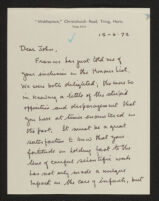 "Waldropton," Christchurch Road, Tring, Herts.
15-6-72
Dear John,
Frances has just told me of
your inclusion in the Honours List.
We were both delighted, the more so
in knowing a little of the sticked
opposition and disparagement that
you have at times encountered in
the past. It must be a great
satisfaction to know that your
fortitude in holding fast to the
line of careful scientific work
has not only made a unique
impact in the care of infants, but